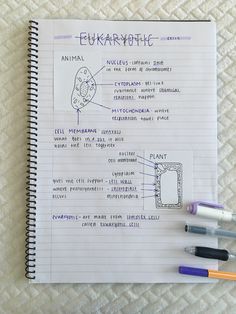 EUKARYOTIC
ANIMAL
NUCLEUS - contains DNA
in the form of chromosomes
CYTOPLASM - gel-like
substance where chemical
reactions happen
MITOCHONDRIA - where
respiration takes place
CELL MEMBRANE controls
what goes in & out & also
holds the cell together
PLANT
nucleus
cell membrane
cytoplasm
gives the cell support - cell wall
where photosynthesis - chloroplasts
occurs
mitochondria
EUKARYOTIC - are made from complex cells
called eukaryotic cells